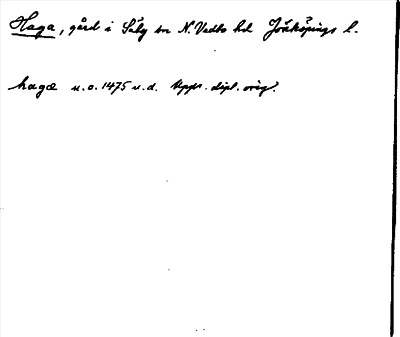 Haga, gård i Säby sn N. Vedbo hd Jönköpings l.
hagæ u.o. 1475 u.d. Upps. dipl. orig.